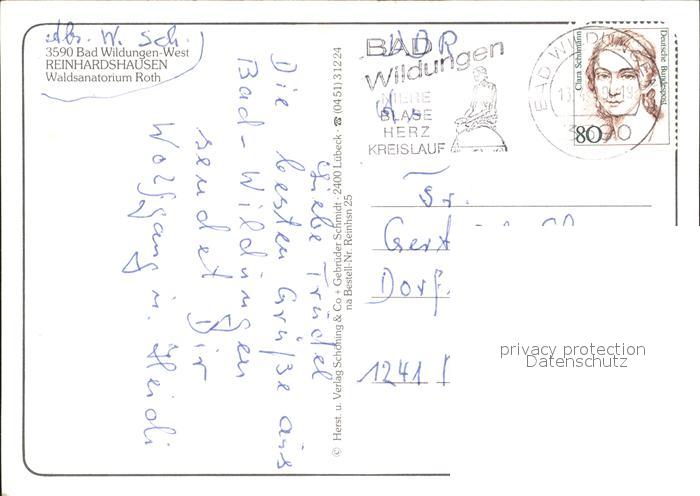 Abs. W. Sch.
3590 Bad Wildungen-West
REINHARDSHAUSEN
Waldsanatorium Roth
Liebe Trudel
Die besten Grüße aus
Bad-Wildungen
sendet Dir
Wolfgang u. Heidi
© Herst. u. Verlag Schöning & Co + Gebrüder Schmidt · 2400 Lübeck · ☎ (0451) 31224
na Bestell-Nr. Reinhsn 25
DDR
BAD
Wildungen
NIERE
BLASE
HERZ
KREISLAUF
BAD WILDUNGEN
3590
Clara Schumann
Deutsche Bundespost
80
Fr.
Gert
Dorf
1241
privacy protection
Datenschutz